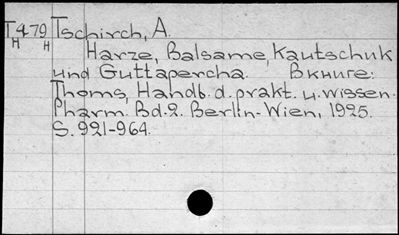 T479 Tschirch, A.
H H Harze, Balsame, Kautschuk
und Guttapercha. В книге:
Thoms, Handb. d. prakt. u. wissen.
Pharm. Bd. 2. Berlin-Wien, 1925.
S. 921-964.